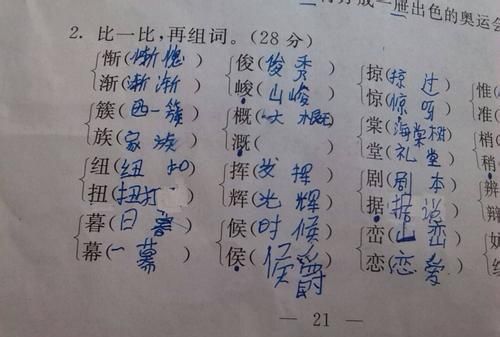 成一册出色的奥运会
2. 比一比,再组词。(28分)
惭(惭愧) 俊(俊秀) 掠(掠过) 惟(
渐(渐渐) 峻(山峻) 惊(惊呀) 准(
簇(一簇 概(大概) 棠(海棠树 梢(
族(家族) 溉( ) 堂(礼堂) 稍(
纽(纽扣) 挥(发挥) 剧(剧本) 辨
扭(扭打 ) 辉(光辉) 据(据说) 辩
暮(日暮) 候(时候) 峦(山峦)
幕(一幕) 侯(侯爵) 恋(恋爱)
— 21 —